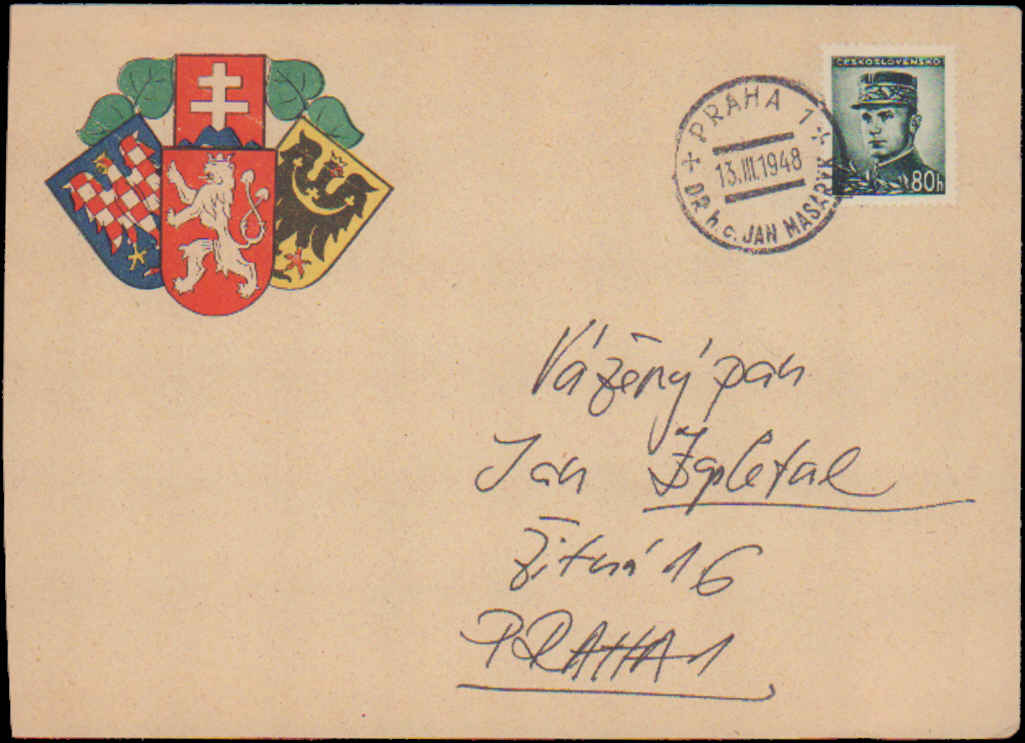 ČESKOSLOVENSKO
80h
PRAHA 1
13.III.1948
DR h.c. JAN MASARYK
Vážený pan
Jan Zapletal
Žitná 16
PRAHA 1